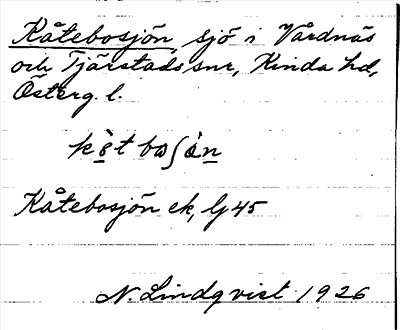 Kåtebosjön, sjö i Vårdnäs
och Tjärstads snr, Kinda hd,
Österg. l.
Kåtebosjön ek, lj 45
N. Lindqvist 1926